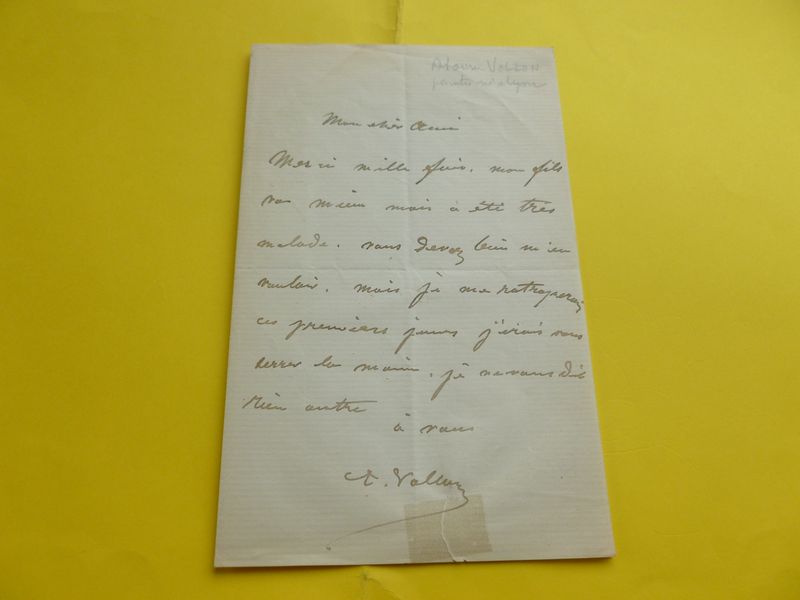 Antoine VOLLON
peintre né à Lyon
Mon cher Ami
Merci mille fois. mon fils
va mieux mais à été très
malade. vous devez bien m'en
vouloir. mais je me rattraperai
ces premiers jours j'irais vous
serrer la main. je ne vous dis
rien autre
à vous
A. Vollon